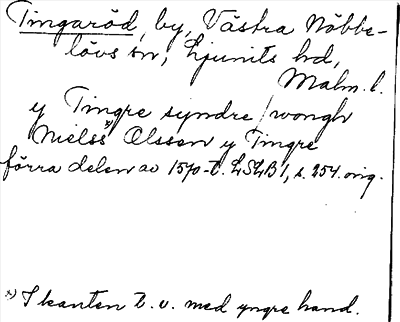 Tingaröd, by, Västra Nöbbe-
lövs sn, Ljunits hd,
Malm. l.
y Tingre syndre / wongh
Nielss *) Olssen y Tingre
förra delen av 1570-t. LSLB 1, s. 254. orig.
*) I kanten t. v. med yngre hand.